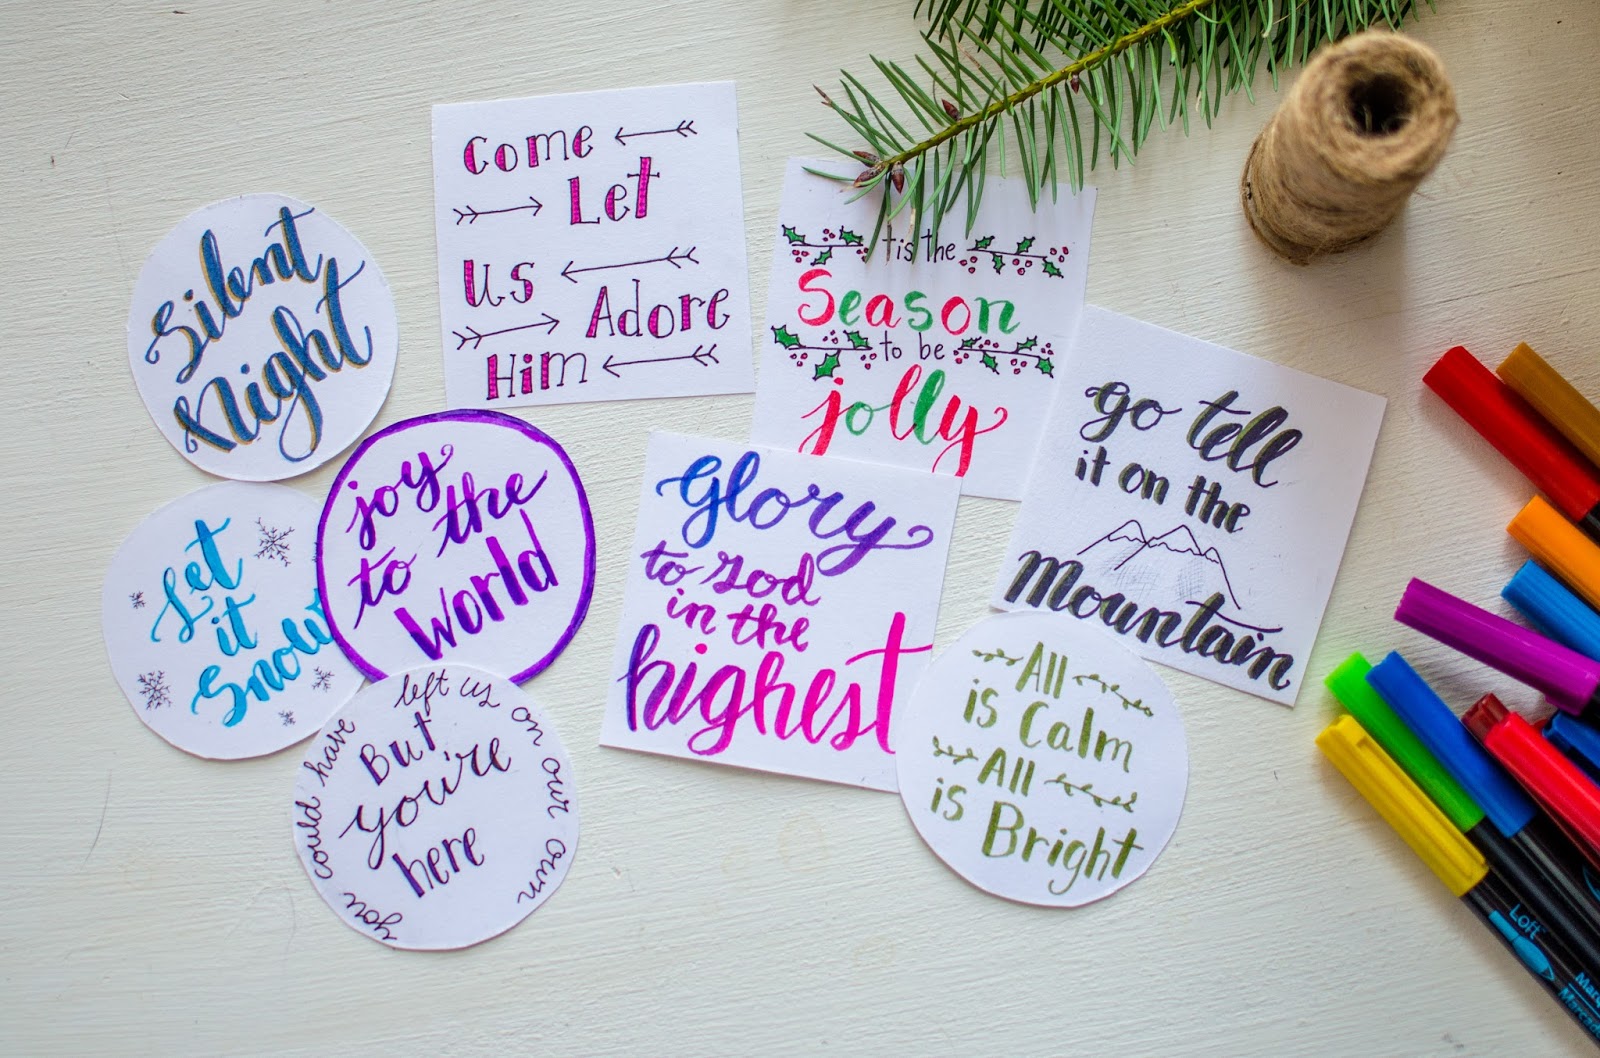 Silent
Night
Come
Let
Us
Adore
Him
'tis the
Season
to be
jolly
go tell
it on the
Mountain
Let
it
Snow
joy
to the
World
Glory
to God
in the
highest
you could have left us on our own
But
you're
here
All
is Calm
All
is Bright
Loft